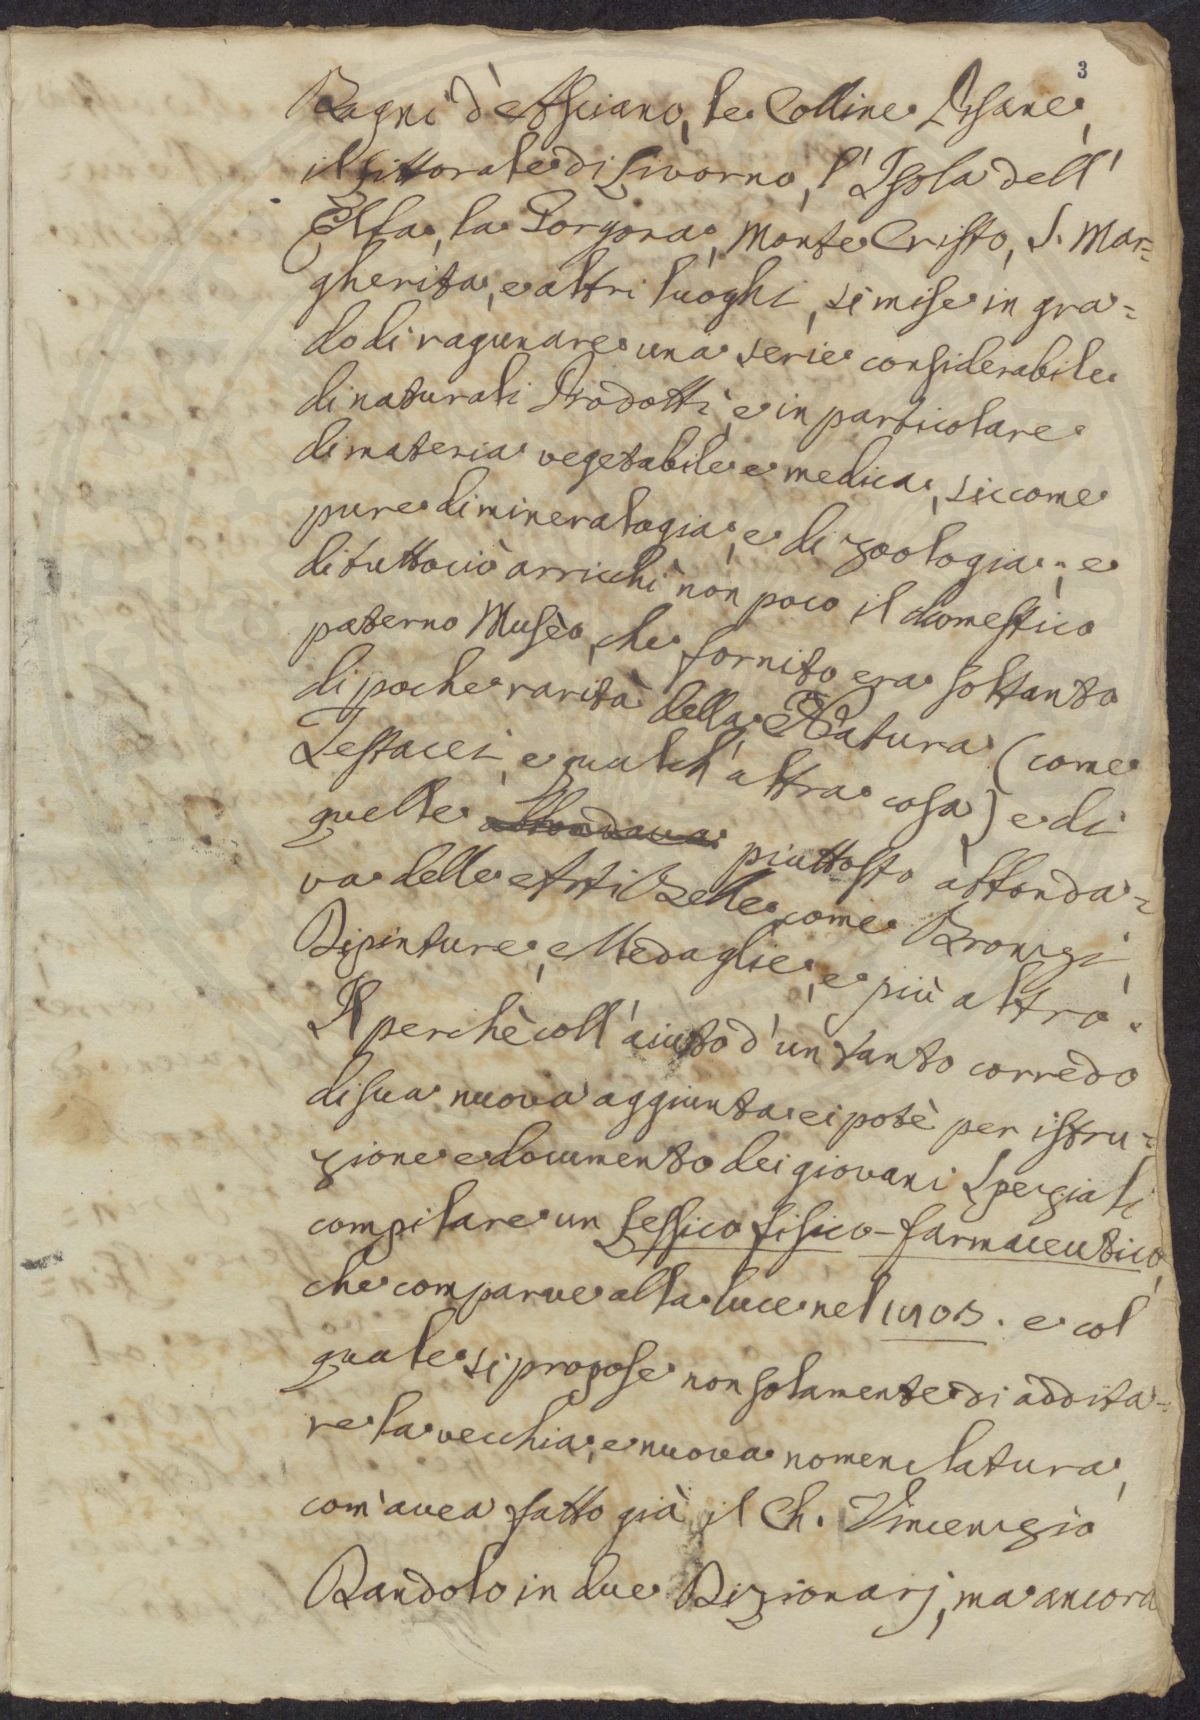 3
Bagni d'Asciano, le Colline Pisane,
il Littorale di Livorno, l'Isola dell'
Elba, la Gorgona, Monte Cristo, S. Mar=
gherita, e altri luoghi, si mise in gra=
do di ragunare una serie considerabile
di naturali Prodotti, e in particolare
di materia vegetabile e medica, siccome
pure di mineralogia, e di zoologia; e
di tuttociò arricchì non poco il domestico
paterno Musèo, che fornito era soltanto
di poche rarità della Natura (come
Testacei, e qualch'altra cosa) e di
quelle abbondava piuttosto abbonda=
va delle Arti Belle, come Bronzi,
Dipinture, Medaglie, e più altro.
Il perchè coll'aiuto d'un tanto corredo
di sua nuova aggiunta ei potè per istru=
zione e documento dei giovani Speziali
compilare un Lessico fisico-farmaceutico,
che comparve alla luce nel 1803. e col
quale si propose non solamente di addita=
re la vecchia, e nuova nomenclatura,
com'avea fatto già il Ch. Vincenzio
Dandolo in due Dizionarj, ma ancora